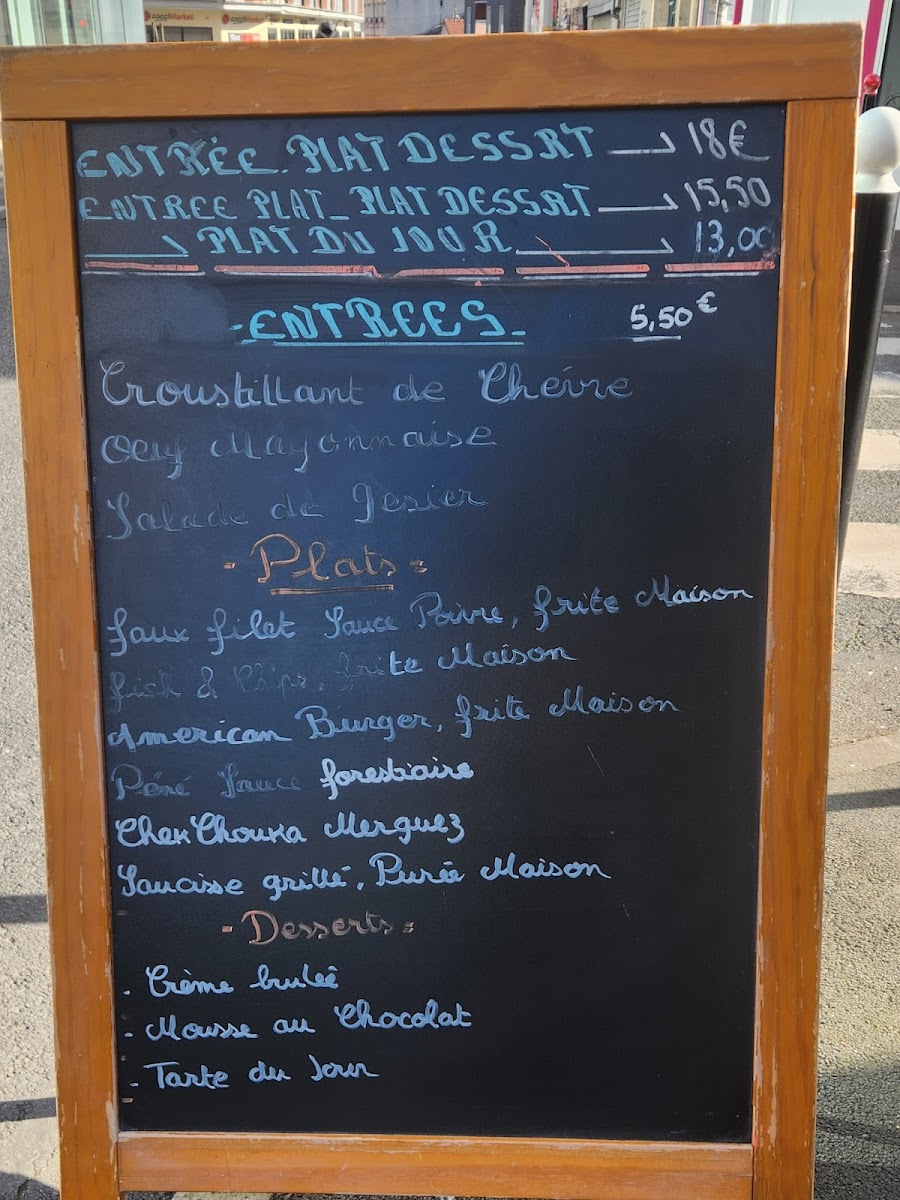 coccimarket
coccimarket
ENTRÉE. PLAT DESSRT → 18€
ENTREE PLAT_PLAT DESSRT → 15,50
→ PLAT DU JOUR → 13,00
-ENTREES- 5,50€
Croustillant de Chèvre
Oeuf Mayonnaise
Salade de Gesier
- Plats -
faux filet Sauce Poivre, frite Maison
fish & Chips, frite Maison
American Burger, frite Maison
Péné Sauce forestiaire
ChekChouka Merguez
Saucisse grillé, Purée Maison
- Desserts -
. Crème brulée
- Mousse au Chocolat
- Tarte du Jour